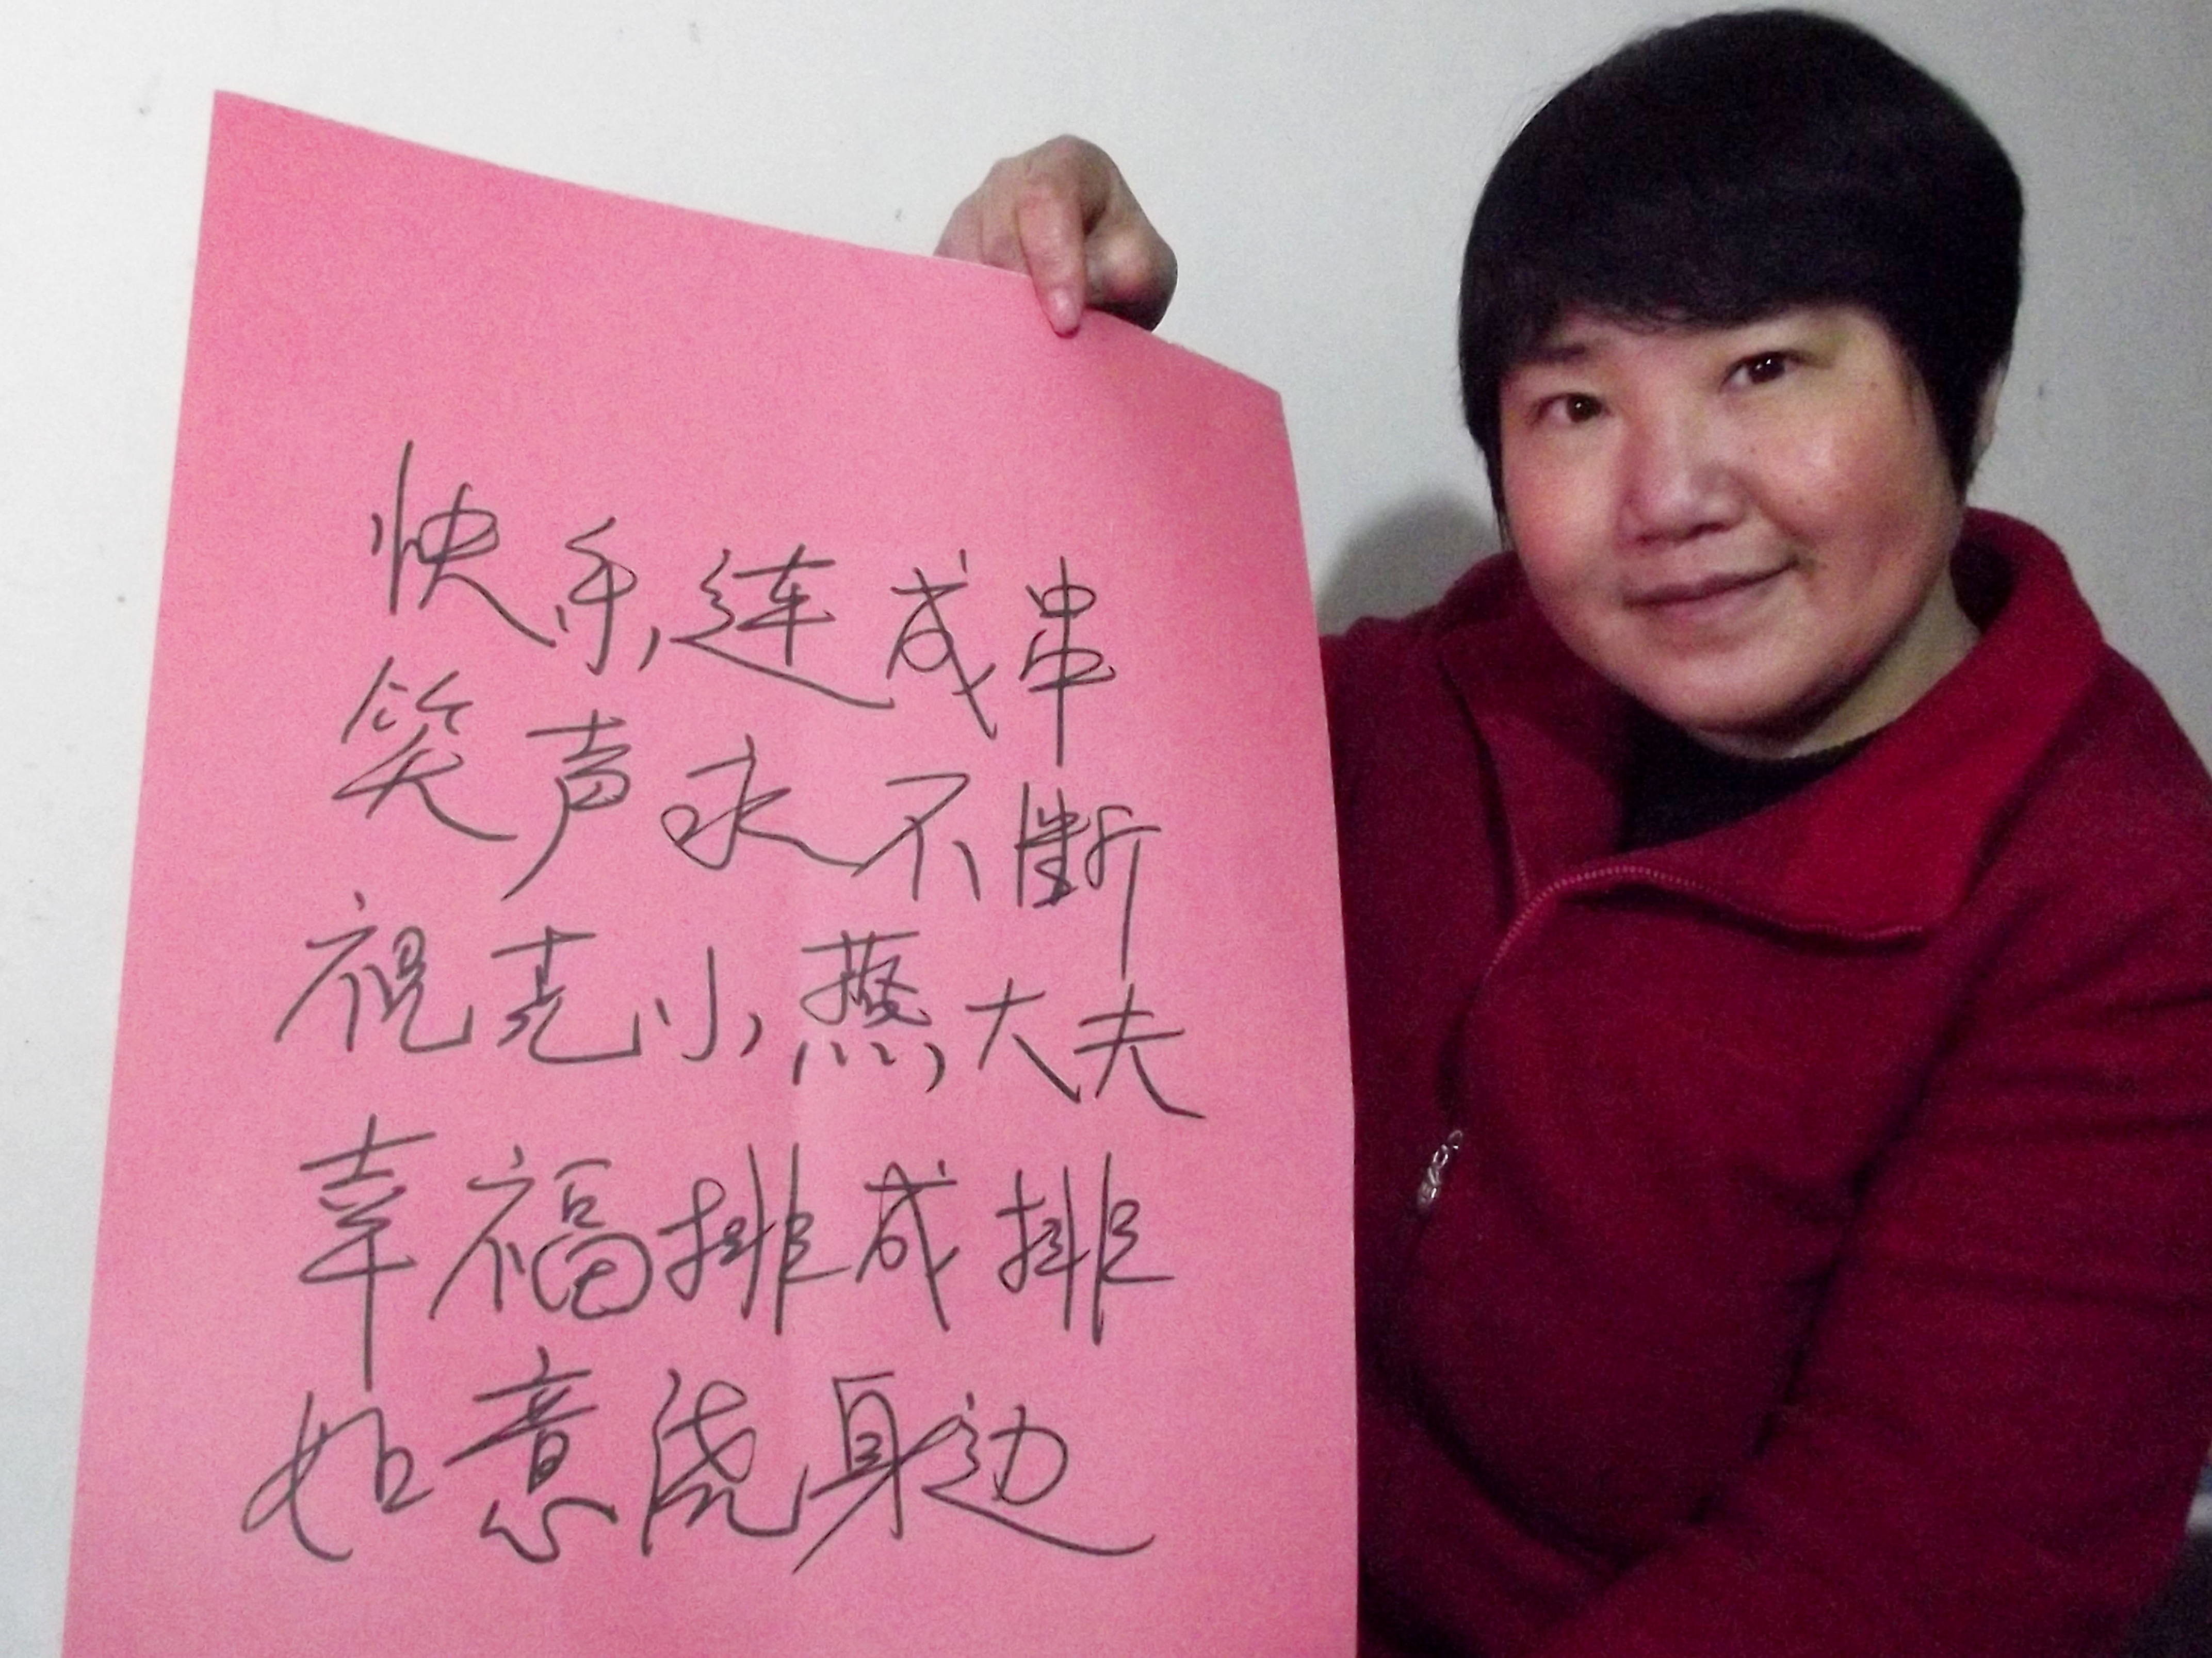 快乐连成串
笑声永不断
祝克小燕大夫
幸福排成排
如意绕身边